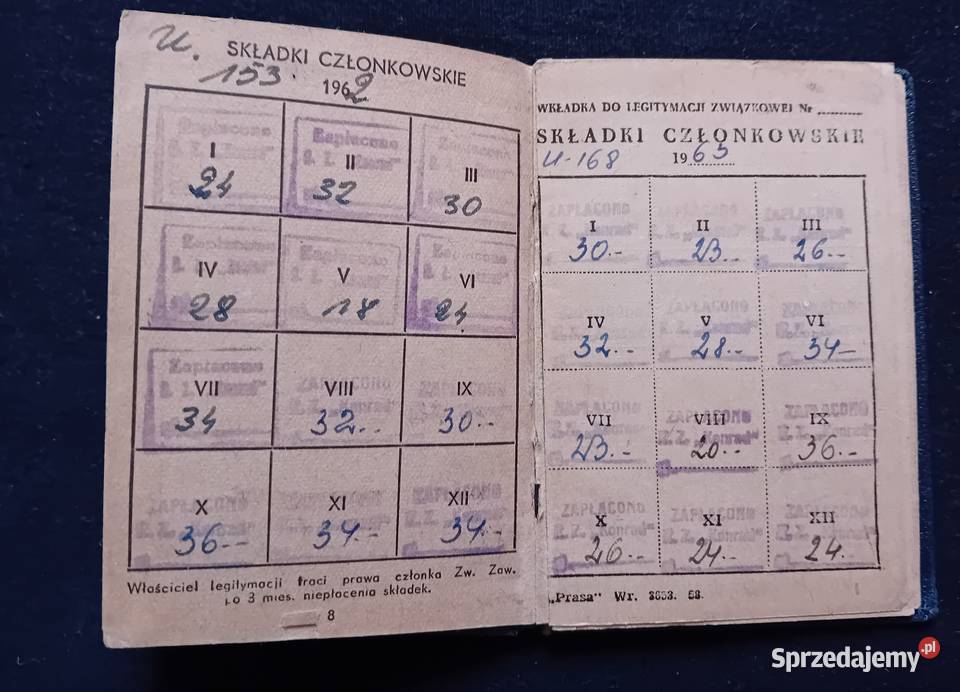 U.
SKŁADKI CZŁONKOWSKIE
153. 1962
Zapłacono Zapłacono Zapłacono
I II III
24 32 30
Zapłacono Zapłacono Zapłacono
IV V VI
28 18 24
Zapłacono ZAPŁACONO ZAPŁACONO
VII VIII IX
34 32.- 30.-
ZAPŁACONO ZAPŁACONO ZAPŁACONO
X XI XII
36.- 34.- 34.-
Właściciel legitymacji traci prawa członka Zw. Zaw.
po 3 mies. niepłacenia składek.
8
WKŁADKA DO LEGITYMACJI ZWIĄZKOWEJ Nr
SKŁADKI CZŁONKOWSKIE
U-168 1963
ZAPŁACONO ZAPŁACONO ZAPŁACONO
I II III
30.- 23.- 26.-
ZAPŁACONO ZAPŁACONO ZAPŁACONO
IV V VI
32.- 28.- 34-
ZAPŁACONO ZAPŁACONO ZAPŁACONO
VII VIII IX
R.Z. „Konrad" R.Z. „Konrad"
23.- 20.- 36.-
ZAPŁACONO ZAPŁACONO ZAPŁACONO
R.Z. „Konrad" R.Z. „Konrad" R.Z. „Konrad"
X XI XII
26.- 24.- 24.-
„Prasa" Wr. 3653. 58.
Sprzedajemy.pl